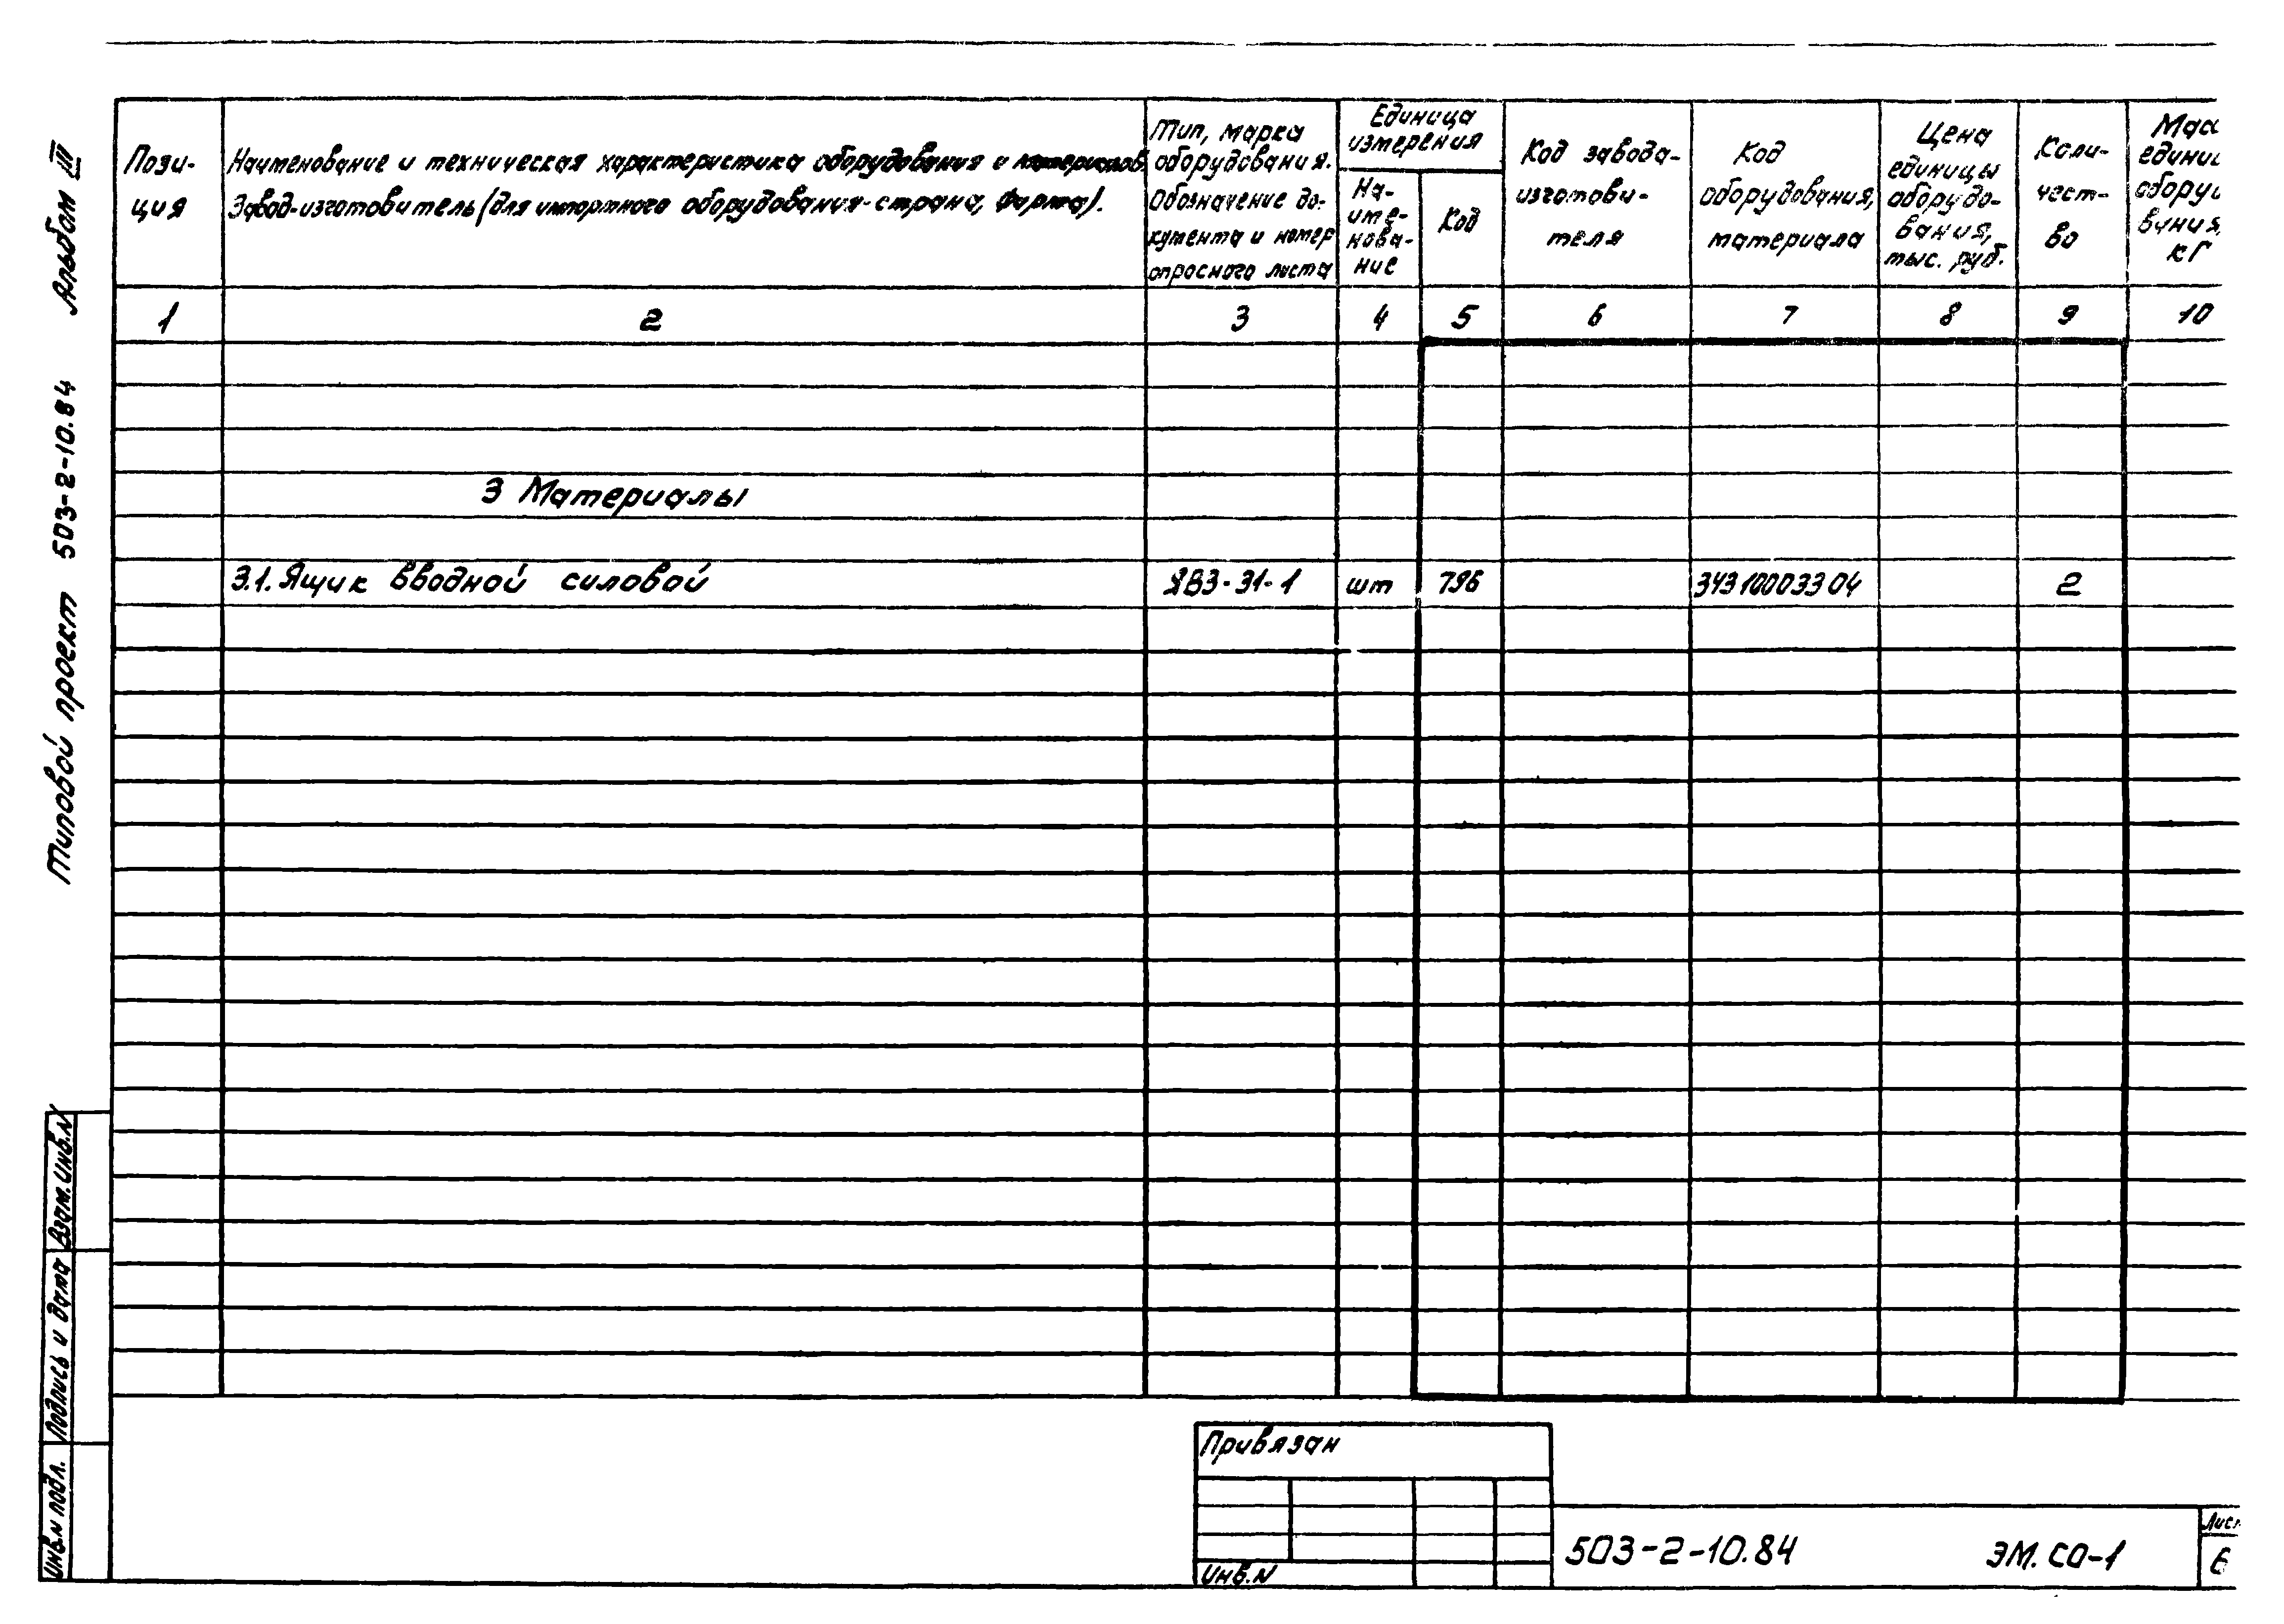 Типовой проект 503-2-10.84 Альбом III
Пози-
ция
Наименование и техническая характеристика оборудования и материалов.
Завод-изготовитель (для импортного оборудования-страна, фирма).
Тип, марка
оборудования.
Обозначение до-
кумента и номер
опросного листа
Единица
измерения
На-
име-
нова-
ние
Код
Код завода-
изготови-
теля
Код
оборудования,
материала
Цена
единицы
оборудо-
вания,
тыс. руб.
Коли-
чест-
во
Мас
едини
обору
вания,
кг
1 2 3 4 5 6 7 8 9 10
3 Материалы
3.1. Ящик вводной силовой ЯВЗ-31-1 шт 796 34310003304 2
Взам. инв. N
Подпись и дата
Инв. N подл.
Привязан
Инв. N
503-2-10.84 ЭМ. СО-1
Лист
6